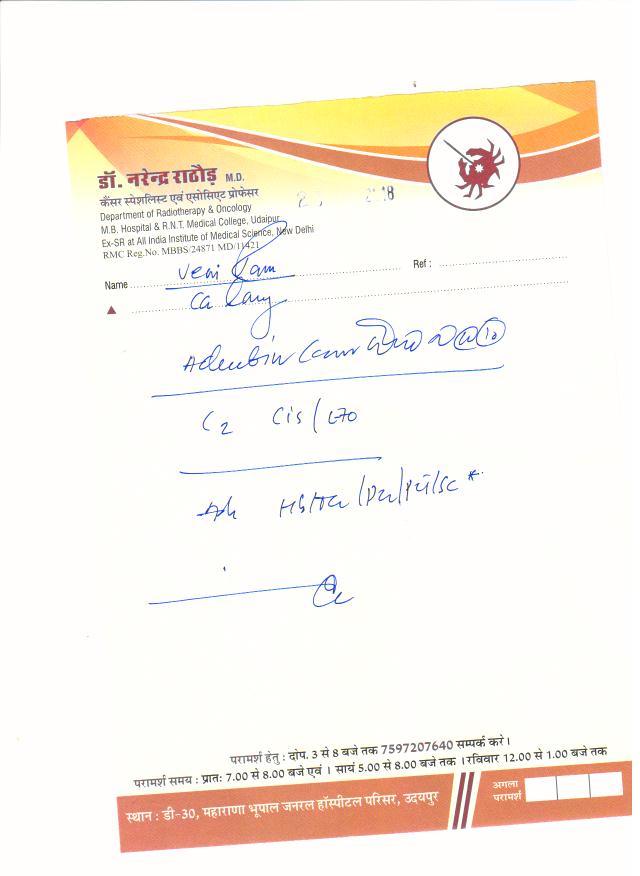 डॉ. नरेन्द्र राठौड़ M.D.
कैंसर स्पेशलिस्ट एवं एसोसिएट प्रोफेसर
Department of Radiotherapy & Oncology
M.B. Hospital & R.N.T. Medical College, Udaipur
Ex-SR at All India Institute of Medical Science, New Delhi
RMC Reg.No. MBBS/24871 MD/11421
Name Veni Ram Ref :
Ca
C2 Cis/
परामर्श हेतु : दोप. 3 से 8 बजे तक 7597207640 सम्पर्क करे।
परामर्श समय : प्रातः 7.00 से 8.00 बजे एवं । सायं 5.00 से 8.00 बजे तक । रविवार 12.00 से 1.00 बजे तक
स्थान : डी-30, महाराणा भूपाल जनरल हॉस्पीटल परिसर, उदयपुर
अगला
परामर्श